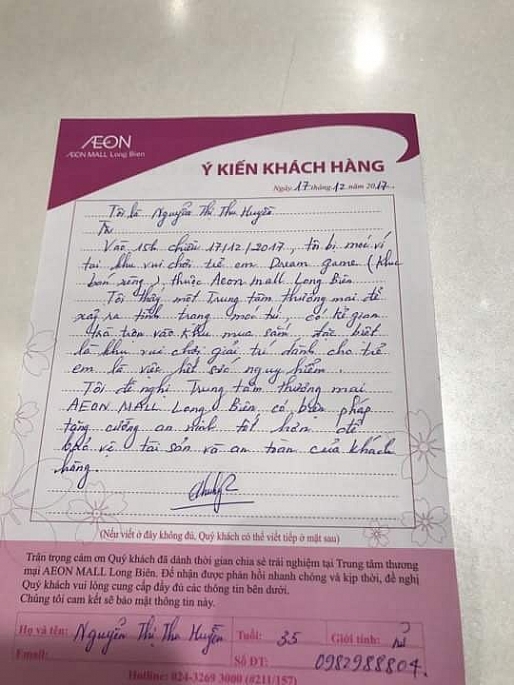 ÆON
ÆON MALL Long Bien
Ý KIẾN KHÁCH HÀNG
Ngày 17 tháng 12 năm 2017
Tôi là Nguyễn Thị Thu Huyền
Vào 15h chiều 17/12/2017, tôi bị móc ví
tại khu vui chơi trẻ em Dream game (Khu
thuộc Aeon mall Long Biên
Tôi thấy một Trung tâm thương mại để
xảy ra tình trạng móc túi, có kẻ gian
trà trộn vào khu mua sắm, đặc biệt
là khu vui chơi giải trí dành cho trẻ
em là việc hết sức nguy hiểm.
Tôi đề nghị Trung tâm thương mại
AEON MALL Long Biên có biện pháp
tăng cường an ninh tốt hơn để
bảo vệ tài sản và an toàn của khách
hàng.
(Nếu viết ở đây không đủ, Quý khách có thể viết tiếp ở mặt sau)
Trân trọng cảm ơn Quý khách đã dành thời gian chia sẻ trải nghiệm tại Trung tâm thương
mại AEON MALL Long Biên. Để nhận được phản hồi nhanh chóng và kịp thời, đề nghị
Quý khách vui lòng cung cấp đầy đủ các thông tin bên dưới.
Chúng tôi cam kết sẽ bảo mật thông tin này.
Họ và tên: Nguyễn Thị Thu Huyền Tuổi: 35 Giới tính: nữ
Email: Số ĐT: 0982988804
Hotline: 024-3269 3000 (8211/157)